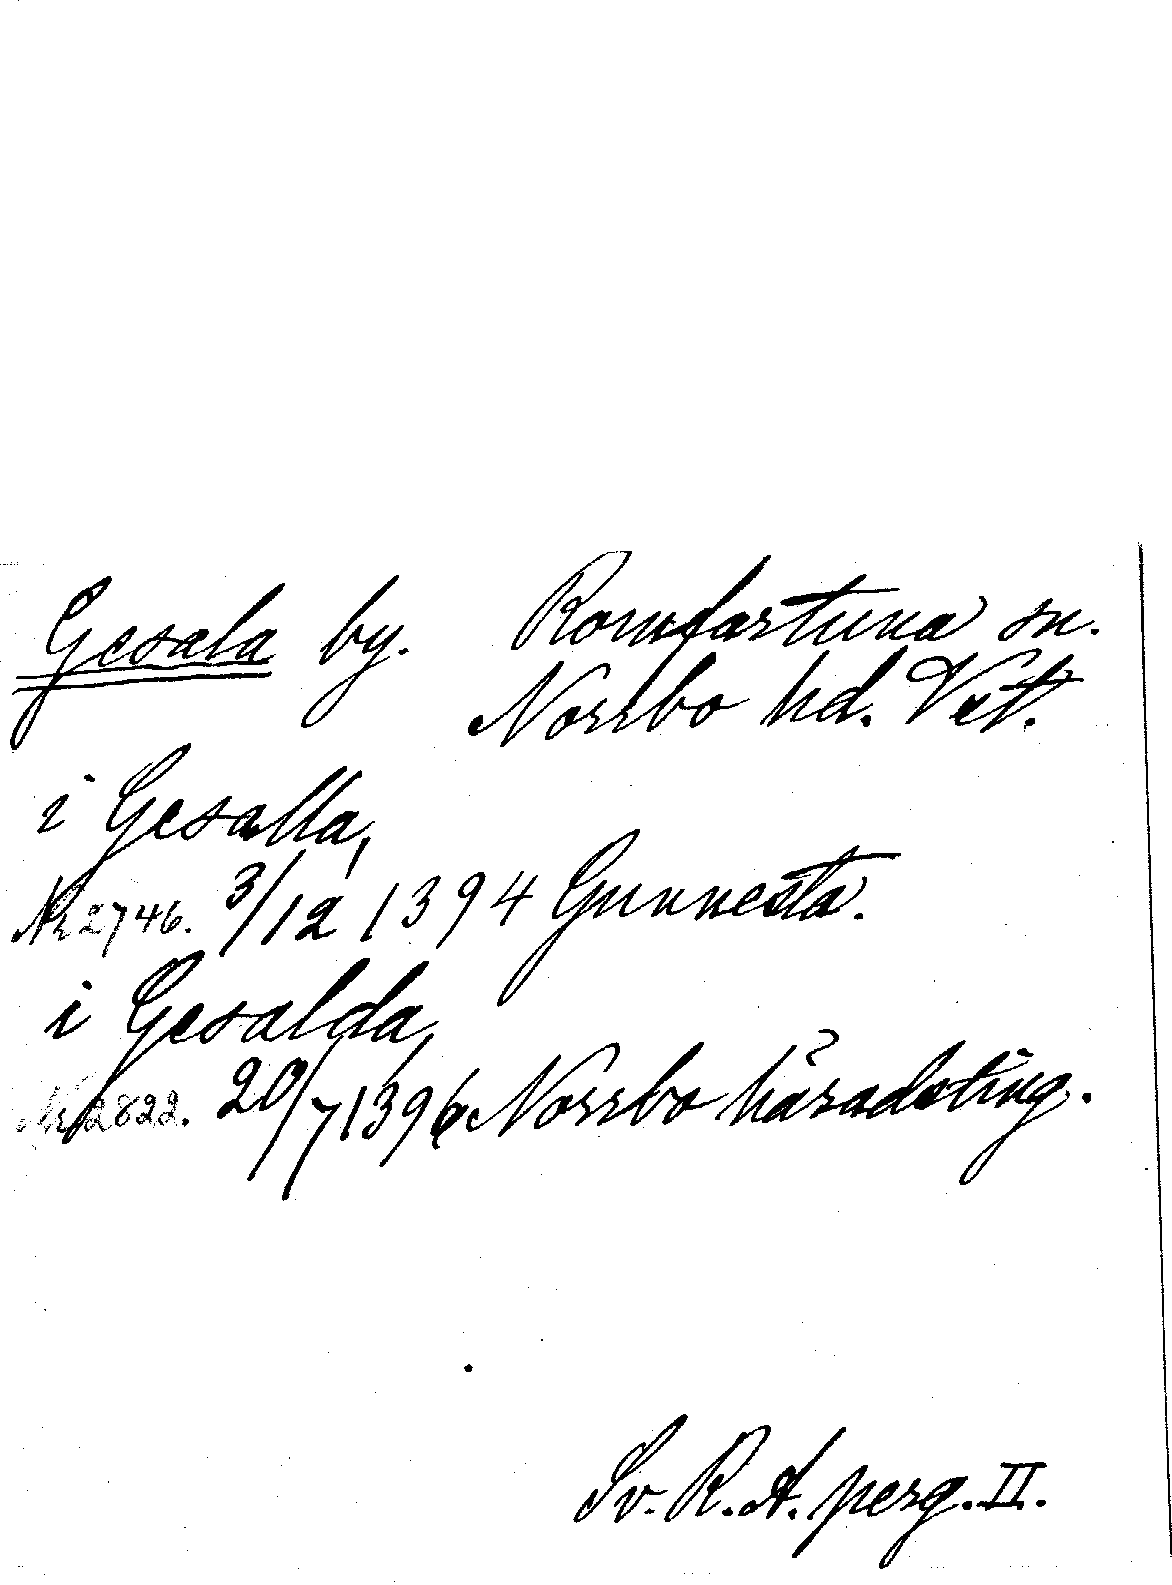 Gesala by. Romfartuna sn.
Norrbo hd. Vstm.
i Gesalla,
Nr 2746. 3/12 1394 Gunnesta.
i Gesalda,
Nr 2822. 20/7 1396 Norrbo häradsting.
Sv. R. A. perg. II.